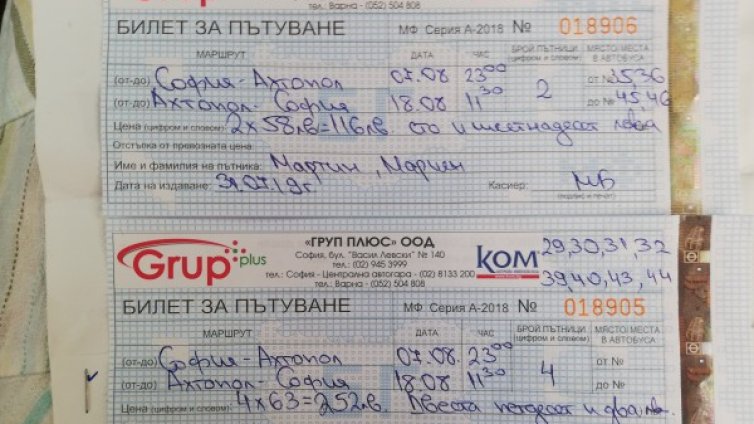 тел.: Варна - (052) 504 808
БИЛЕТ ЗА ПЪТУВАНЕ МФ Серия А-2018 № 018906
МАРШРУТ ДАТА ЧАС БРОЙ ПЪТНИЦИ (цифром и словом) МЯСТО/МЕСТА В АВТОБУСА
(от-до) София-Ахтопол 07.08 23 00 2 от № 35,36
(от-до) Ахтопол-София 18.08 11 30 до № 45,46
Цена (цифром и словом) 2x58лв=116лв. сто и шестнадесет лева
Отстъпка от превозната цена:
Име и фамилия на пътника: Мартин, Мариен
Дата на издаване: 31.07.19г Касиер: МБ
(подпис и печат)
Grup plus «ГРУП ПЛЮС» ООД КОМ 29,30,31,32
София, бул. "Васил Левски" № 140
тел.: (02) 945 3999 39,40,43,44
тел.: София - Централна автогара - (02) 8133 200
тел.: Варна - (052) 504 808
БИЛЕТ ЗА ПЪТУВАНЕ МФ Серия А-2018 № 018905
МАРШРУТ ДАТА ЧАС БРОЙ ПЪТНИЦИ (цифром и словом) МЯСТО/МЕСТА В АВТОБУСА
(от-до) София-Ахтопол 07.08. 23 00 4 от №
(от-до) Ахтопол-София 18.08 11 30 до №
Цена (цифром и словом) 4x63=252лв. Двеста петдесет и два лв.